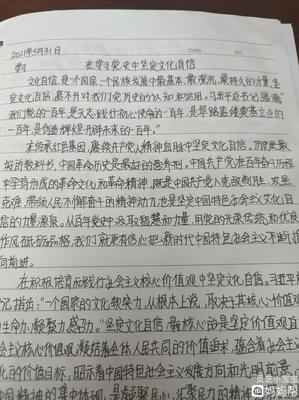 2021年5月31日
Date.
No.
学习
在学习党史中坚定文化自信
文化自信,是一个国家、一个民族发展中最基本、最深沉、最持久的力量。坚
定文化自信,离不开对我们党历史的认知和运用。习近平总书记强调:
"我们党的一百年,是矢志践行初心使命的一百年,是筚路蓝缕奠基立业的
一百年,是创造辉煌开辟未来的一百年。"
本传承红色基因,赓续共产党人精神血脉中坚定文化自信。历史是最
好的教科书,中国革命历史是最好的营养剂。中国共产党在百年奋斗历程
中孕育形成的革命文化和革命精神,既是中国共产党人克敌制胜、攻坚
克难、带领人民不懈奋斗的精神动力,也是坚定中国特色社会主义文化自
信的力量源泉。从百年党史中汲取智慧和力量,用党的光荣传统和优良
作风砥砺品格,我们就更有信心把新时代中国特色社会主义不断推
向前进。
在积极培育和践行社会主义核心价值观中坚定文化自信。习近平总
记指出:"一个国家的文化软实力,从根本上说,取决于其核心价值观
生命力、凝聚力、感召力。"坚定文化自信,最核心的是坚定价值观自
会主义核心价值观,凝结着全体人民共同的价值追求,蕴含着社会主
化的价值目标,昭示着中国特色社会主义发展方向和光明前景,
国精神的集中体现,是凝聚民心、汇聚民力的精神
妈妈帮